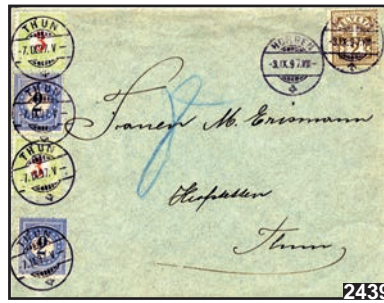 THUN
-7.IX.97.V-
THUN
THUN
-7.IX.97.V-
THUN
HORGEN
-3.IX.97.VII-
HELVETIA
-3.IX.97.VII-
M. Erismann
Hofstetten
Thun
2439